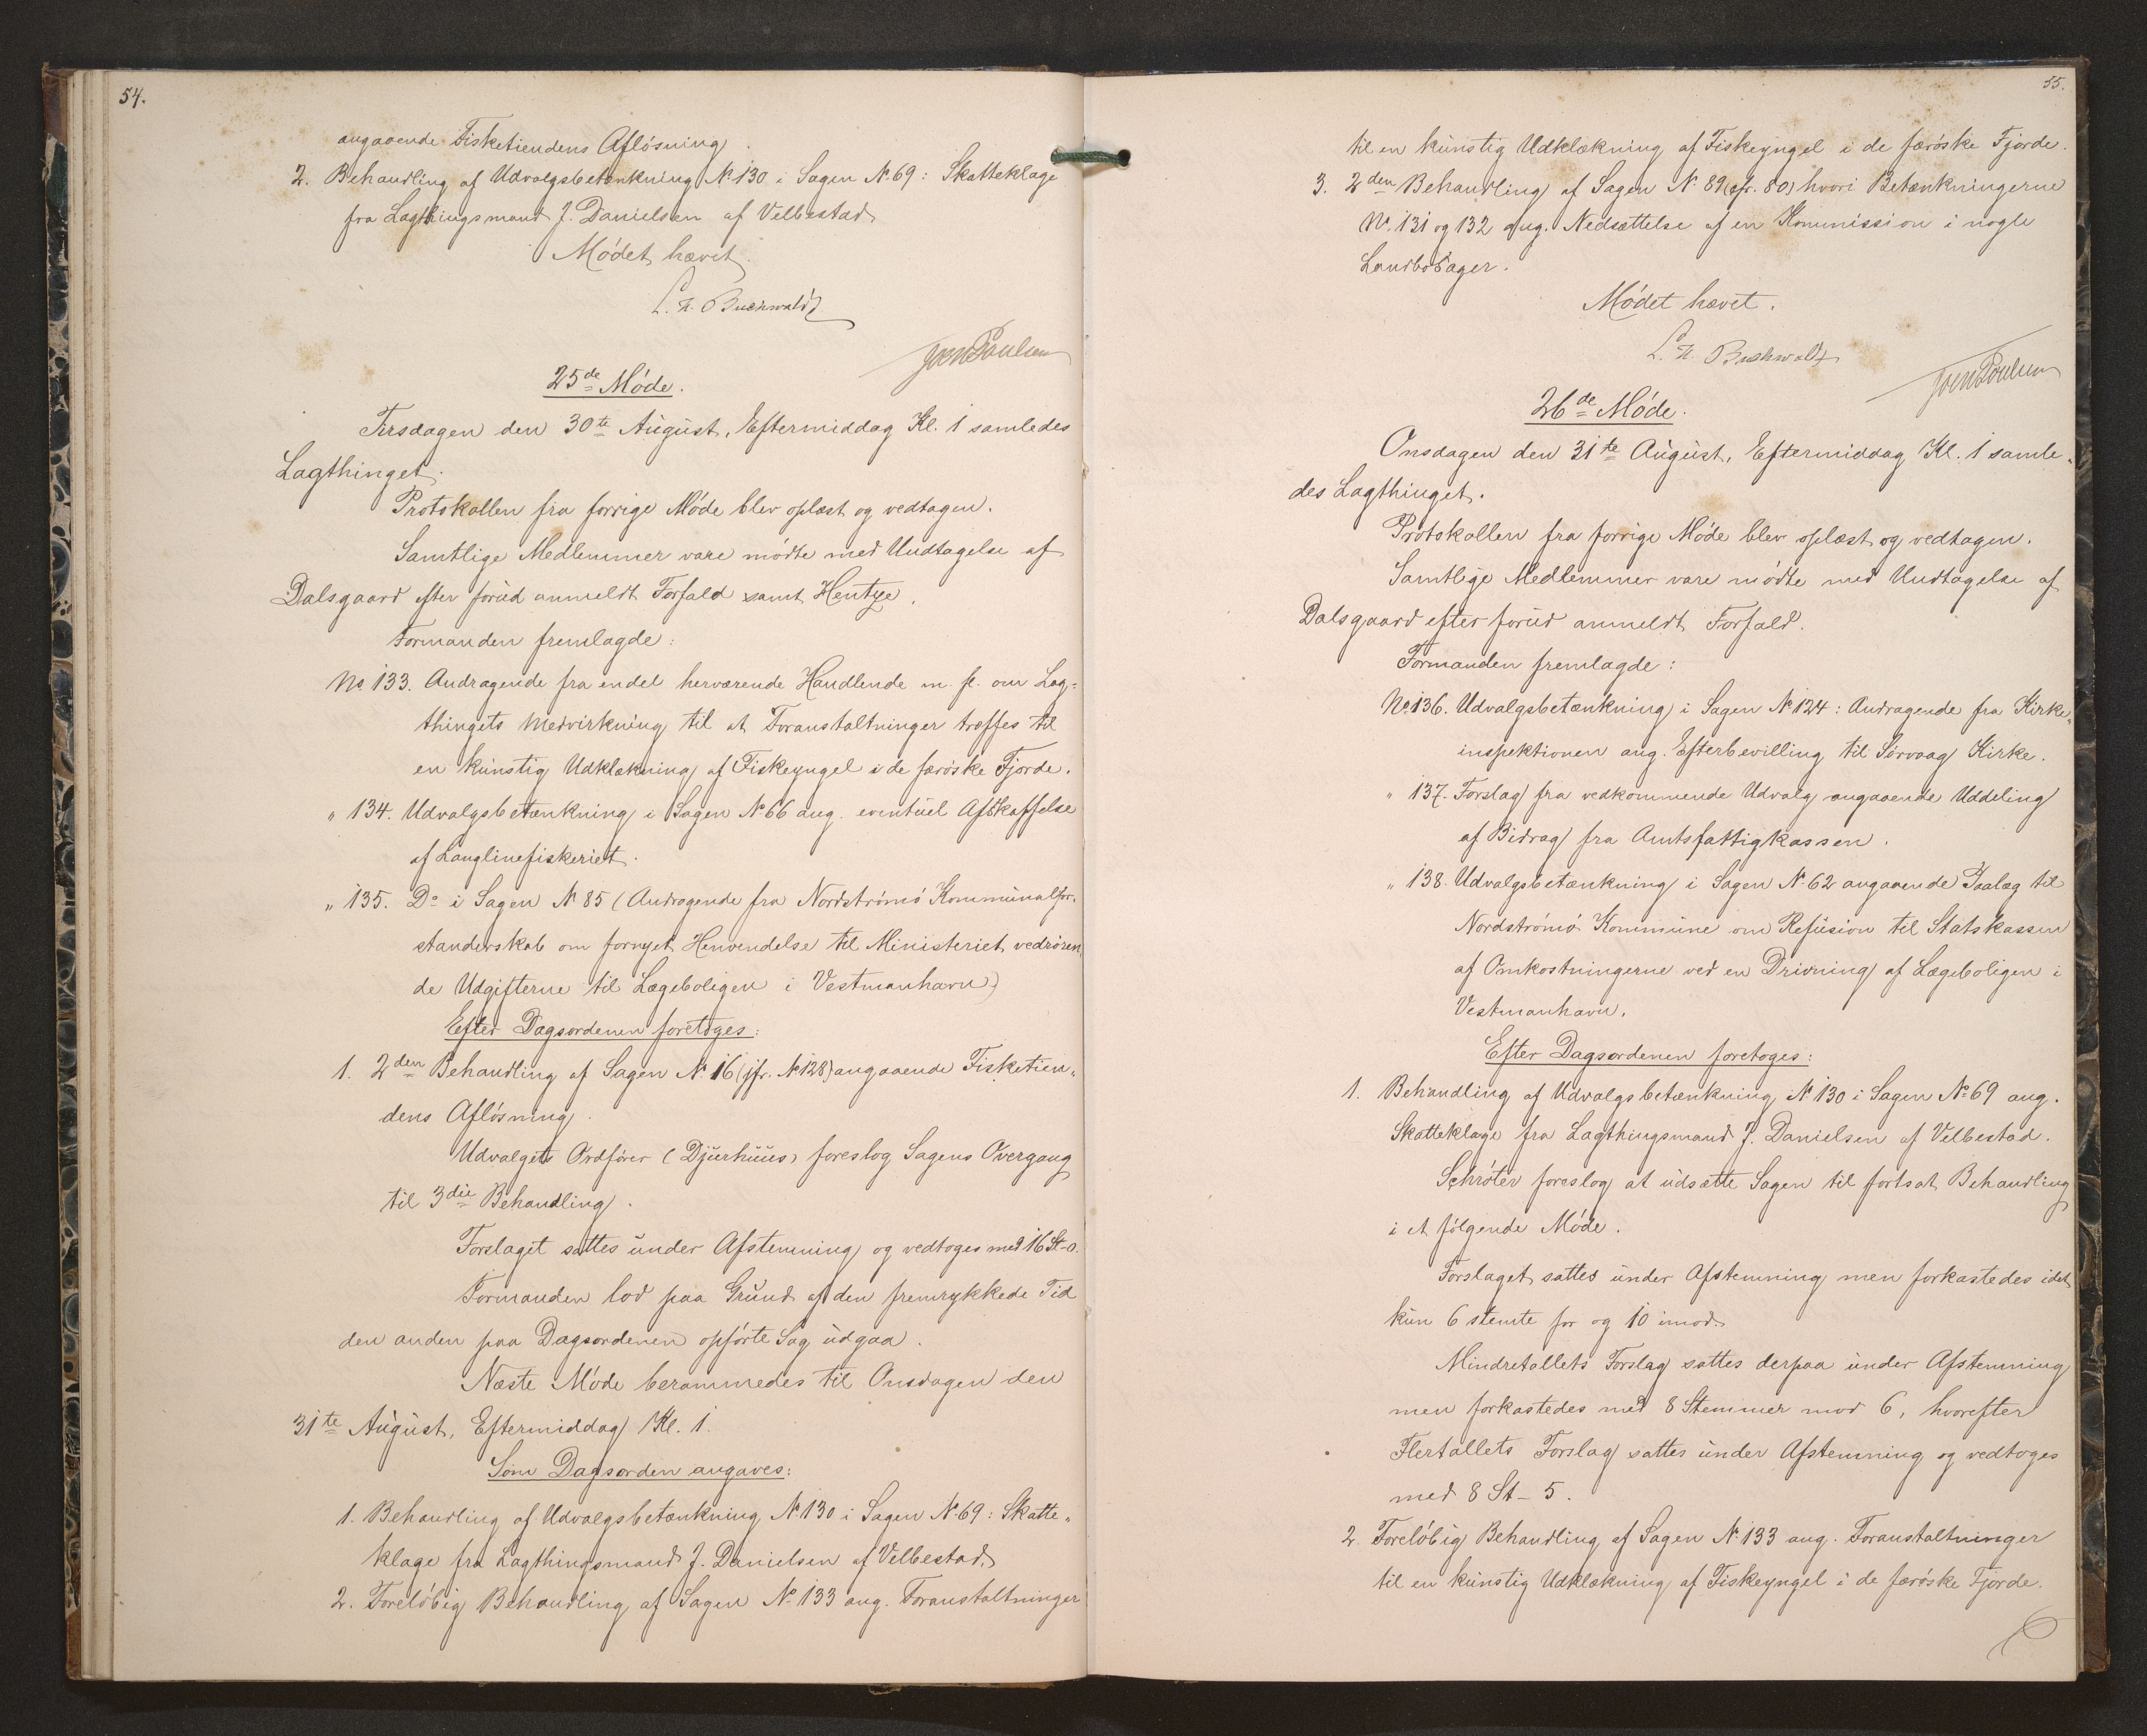 54.
angaaende Fisketiendens Afløsning.
2. Behandling af Udvalgsbetænkning No 130 i Sagen No 69: Skatteklage
fra Lagthingsmand J. Danielsen af Velbestad.
Mødet hævet.
Buchwald
Joen Poulsen
25de Møde.
Tirsdagen den 30te August, Eftermiddag Kl. 1 samledes
Lagthinget.
Protokollen fra forrige Møde blev oplæst og vedtagen.
Samtlige Medlemmer vare mødte med Undtagelse af
Dalsgaard efter forud anmeldt Forfald samt Hentze.
Formanden fremlagde:
No 133. Andragende fra endel herværende Handlende m. fl. om Lag-
thingets Medvirkning til at Foranstaltninger træffes til
en kunstig Udklækning af Fiskeyngel i de færøske Fjorde.
" 134. Udvalgsbetænkning i Sagen No 66 ang. eventuel Afskaffelse
af Langlinefiskeriet.
" 135. Do i Sagen No 85 (Andragende fra Nordstrømø Kommunalfor-
standerskab om fornyet Henvendelse til Ministeriet vedrøren-
de Udgifterne til Lægeboligen i Vestmanhavn)
Efter Dagsordenen foretoges:
1. 2den Behandling af Sagen No 16 (jfr. No 128) angaaende Fisketien-
dens Afløsning.
Udvalgets Ordfører (Djurhuus) foreslog Sagens Overgang
til 3die Behandling.
Forslaget sattes under Afstemning og vedtoges med 16 St-0.
Formanden lod paa Grund af den fremrykkede Tid
den anden paa Dagsordenen opførte Sag udgaa.
Næste Møde berammedes til Onsdagen den
31te August, Eftermiddag Kl. 1.
Som Dagsorden angaves:
1. Behandling af Udvalgsbetænkning No 130 i Sagen No 69: Skatte-
klage fra Lagthingsmand J. Danielsen af Velbestad.
2. Foreløbig Behandling af Sagen No 133 ang. Foranstaltninger
55.
til en kunstig Udklækning af Fiskeyngel i de færøske Fjorde.
3. 2den Behandling af Sagen No 89 (jfr. 80) hvori Betænkningerne
No. 131 og 132 ang. Nedsættelse af en Kommission i nogle
Landbosager.
Mødet hævet.
Buchwald
Joen Poulsen
26de Møde.
Onsdagen den 31te August, Eftermiddag Kl. 1 samle-
des Lagthinget.
Protokollen fra forrige Møde blev oplæst og vedtagen.
Samtlige Medlemmer vare mødte med Undtagelse af
Dalsgaard efter forud anmeldt Forfald.
Formanden fremlagde:
No 136. Udvalgsbetænkning i Sagen No 124: Andragende fra Kirke-
inspektionen ang. Efterbevilling til Sørvaag Kirke.
" 137. Forslag fra vedkommende Udvalg angaaende Uddeling
af Bidrag fra Amtsfattigkassen.
" 138. Udvalgsbetænkning i Sagen No 62 angaaende Paalæg til
Nordstrømø Kommune om Refusion til Statskassen
af Omkostningerne ved en Drivning af Lægeboligen i
Vestmanhavn.
Efter Dagsordenen foretoges:
1. Behandling af Udvalgsbetænkning No 130 i Sagen No 69 ang.
Skatteklage fra Lagthingsmand J. Danielsen af Velbestad.
Schrøter foreslog at udsætte Sagen til fortsat Behandling
i et følgende Møde.
Forslaget sattes under Afstemning men forkastedes idet
kun 6 stemte for og 10 imod.
Mindretallets Forslag sattes derpaa under Afstemning
men forkastedes med 8 Stemmer mod 6, hvorefter
Flertallets Forslag sattes under Afstemning og vedtoges
med 8 St - 5.
2. Foreløbig Behandling af Sagen No 133 ang. Foranstaltninger
til en kunstig Udklækning af Fiskeyngel i de færøske Fjorde.